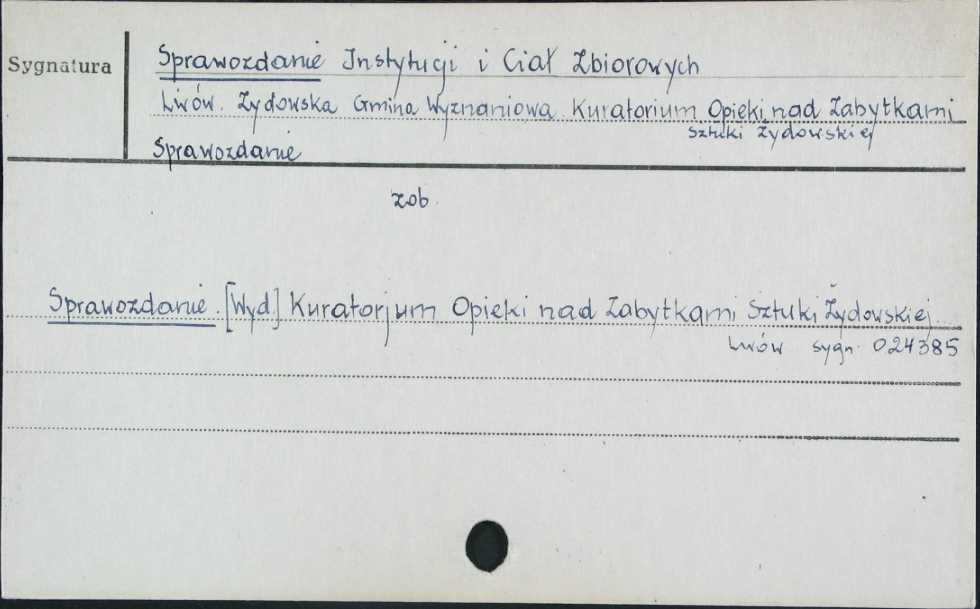 Sygnatura
Sprawozdanie Instytucji i Ciał Zbiorowych
Lwów. Żydowska Gmina Wyznaniowa. Kuratorium Opieki nad Zabytkami
Sztuki Żydowskiej
Sprawozdanie
zob.
Sprawozdanie. [Wyd.] Kuratorjum Opieki nad Zabytkami Sztuki Żydowskiej.
Lwów sygn. 024385